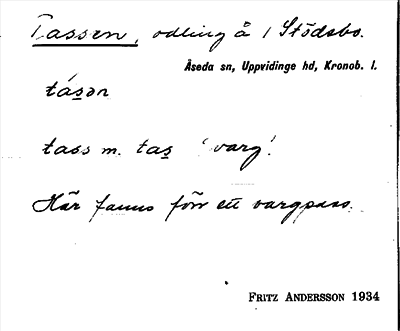 Tassen, odling å 1 Stödsbo.
Åseda sn, Uppvidinge hd, Kronob. l.
tásən
tass m. tas 'varg'.
Här fanns förr ett vargpass.
FRITZ ANDERSSON 1934